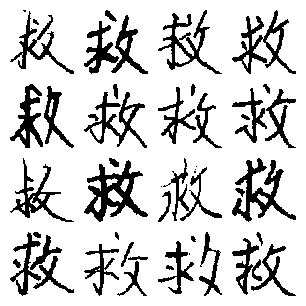 救救救救
救救救救
救救救救
救救救救